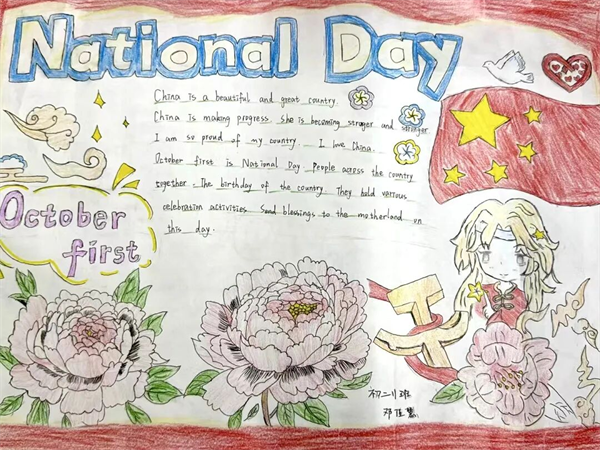 National Day
China is a beautiful and great country.
China is making progress. She is becoming stronger and stronger
I am so proud of my country. I love China.
October first is National Day. People across the country
together. The birthday of the country. They hold various
celebration activities. Send blessings to the motherland on
this day.
October
first
初二
班